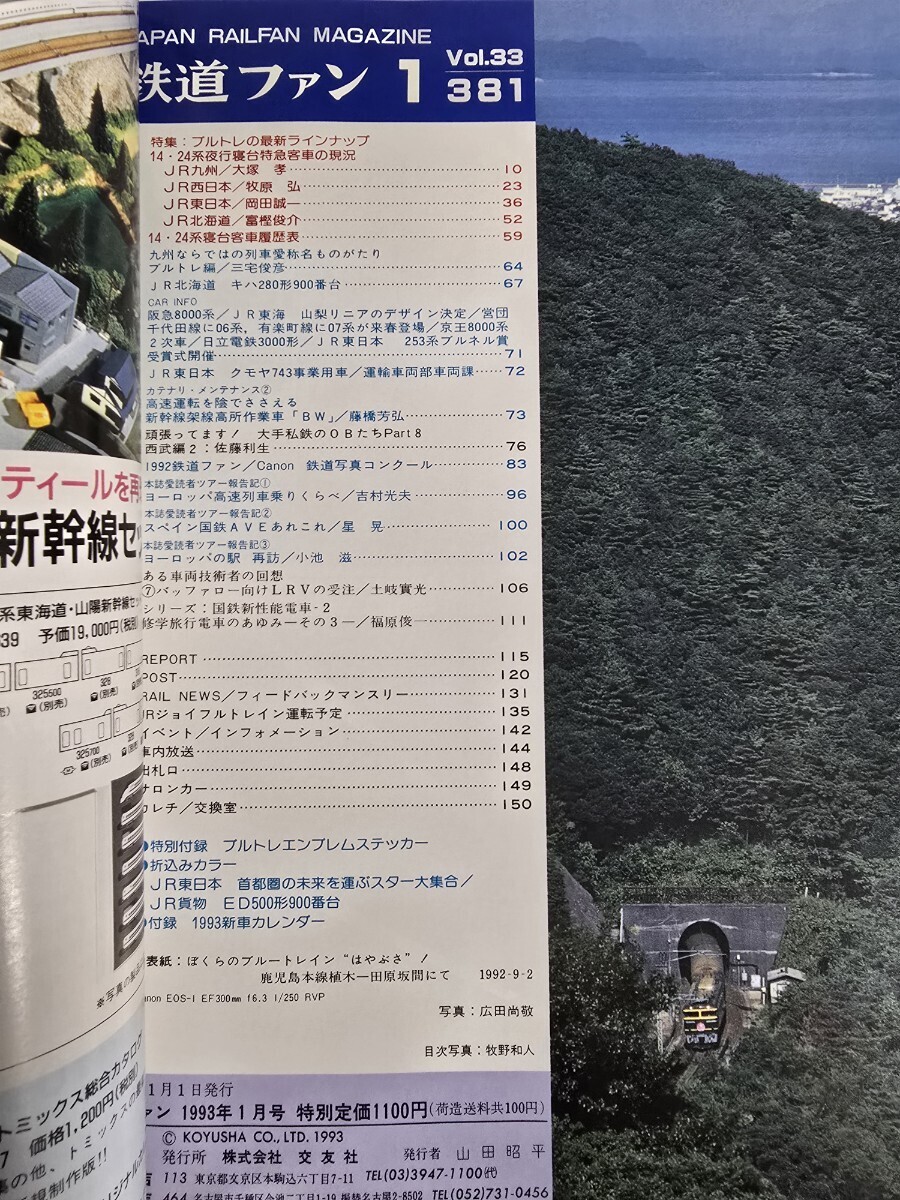 APAN RAILFAN MAGAZINE
鉄道ファン 1 Vol.33
381
特集：ブルトレの最新ラインナップ
14・24系夜行寝台特急客車の現況
JR九州／大塚 孝 10
JR西日本／牧原 弘 23
JR東日本／岡田誠一 36
JR北海道／富樫俊介 52
14・24系寝台客車履歴表 59
九州ならではの列車愛称名ものがたり
ブルトレ編／三宅俊彦 64
JR北海道 キハ280形900番台 67
CAR INFO
阪急8000系／JR東海 山梨リニアのデザイン決定／営団
千代田線に06系，有楽町線に07系が来春登場／京王8000系
2次車／日立電鉄3000形／JR東日本 253系ブルネル賞
受賞式開催 71
JR東日本 クモヤ743事業用車／運輸車両部車両課 72
カテナリ・メンテナンス②
高速運転を陰でささえる
新幹線架線高所作業車「BW」／藤橋芳弘 73
頑張ってます！ 大手私鉄のOBたちPart 8
西武編2：佐藤利生 76
1992鉄道ファン／Canon 鉄道写真コンクール 83
本誌愛読者ツアー報告記①
ヨーロッパ高速列車乗りくらべ／吉村光夫 96
本誌愛読者ツアー報告記②
スペイン国鉄AVEあれこれ／星 晃 100
本誌愛読者ツアー報告記③
ヨーロッパの駅 再訪／小池 滋 102
ある車両技術者の回想
⑦バッファロー向けLRVの受注／土岐實光 106
シリーズ：国鉄新性能電車-2
修学旅行電車のあゆみ—その3—／福原俊一 111
REPORT 115
POST 120
RAIL NEWS／フィードバックマンスリー 131
JRジョイフルトレイン運転予定 135
イベント／インフォメーション 142
車内放送 144
出札口 148
サロンカー 149
カレチ／交換室 150
●特別付録 ブルトレエンブレムステッカー
●折込みカラー
JR東日本 首都圏の未来を運ぶスター大集合／
JR貨物 ED500形900番台
●付録 1993新車カレンダー
表紙：ぼくらのブルートレイン“はやぶさ”！
鹿児島本線植木—田原坂間にて 1992-9-2
anon EOS-1 EF300mm f6.3 1/250 RVP
写真：広田尚敬
目次写真：牧野和人
1月1日発行
ァン 1993年1月号 特別定価1100円(荷造送料共100円)
© KOYUSHA CO., LTD. 1993
発行所 株式会社 交友社 発行者 山田昭平
113 東京都文京区本駒込六丁目7-11 TEL(03)3947-1100(代)
464 名古屋市千種区今池二丁目1-19 振替名古屋2-8502 TEL(052)731-0456
ティールを再
新幹線セッ
系東海道・山陽新幹線セッ
39 予価19,000円(税別)
325600
(別売)
326
(別売)
325700
(別売)
※写真の製品
トミックス総合カタログ
7 価格1,200円(税別)